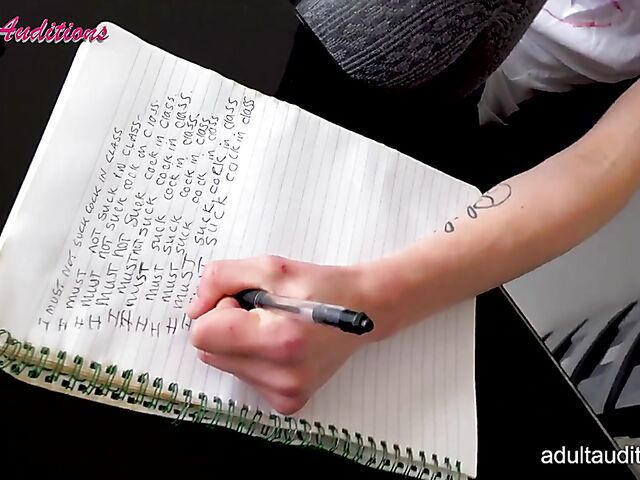 Auditions
I MUST NOT SUCK COCK IN CLASS
I MUST NOT SUCK IN CLASS.
I MUST NOT SUCK COCK IN CLASS.
I MUST NOT SUCK COCK IN CLASS.
I MUST NOT SUCK COCK IN CLASS.
I MUST SUCK COCK IN CLASS
I MUST SUCK COCK IN CLASS
I MUST SUCK COCK IN CLASS
SUCK COCK IN CLASS
adultaudit